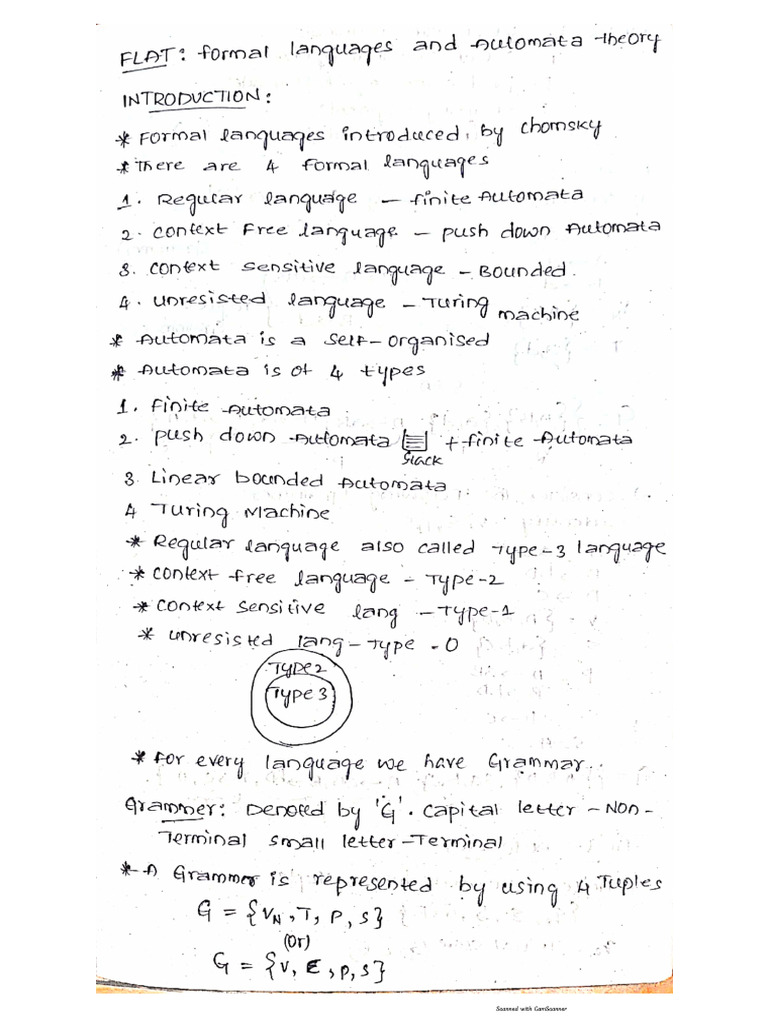 FLAT: formal languages and Automata Theory
INTRODUCTION:
* Formal languages introduced, by Chomsky
* There are 4 formal languages
1. Regular language – finite Automata
2. Context Free language – push down Automata
3. Context sensitive language – Bounded.
4. unresisted language – Turing machine
* Automata is a self-organised
* Automata is of 4 types
1. finite Automata
2. push down Automata + finite Automata
stack
3 Linear bounded Automata
4 Turing Machine
* Regular language also called Type-3 language
* context free language - Type-2
* context sensitive lang - Type-1
* unresisted lang – Type - 0
Type 2
Type 3
* For every language we have Grammar.
Grammer: Denoted by 'G'. capital letter – Non-
Terminal small letter – Terminal
* A Grammer is represented by using 4 Tuples
G = {VN, T, P, S}
(Or)
G = {V, Σ, P, S}
Scanned with CamScanner